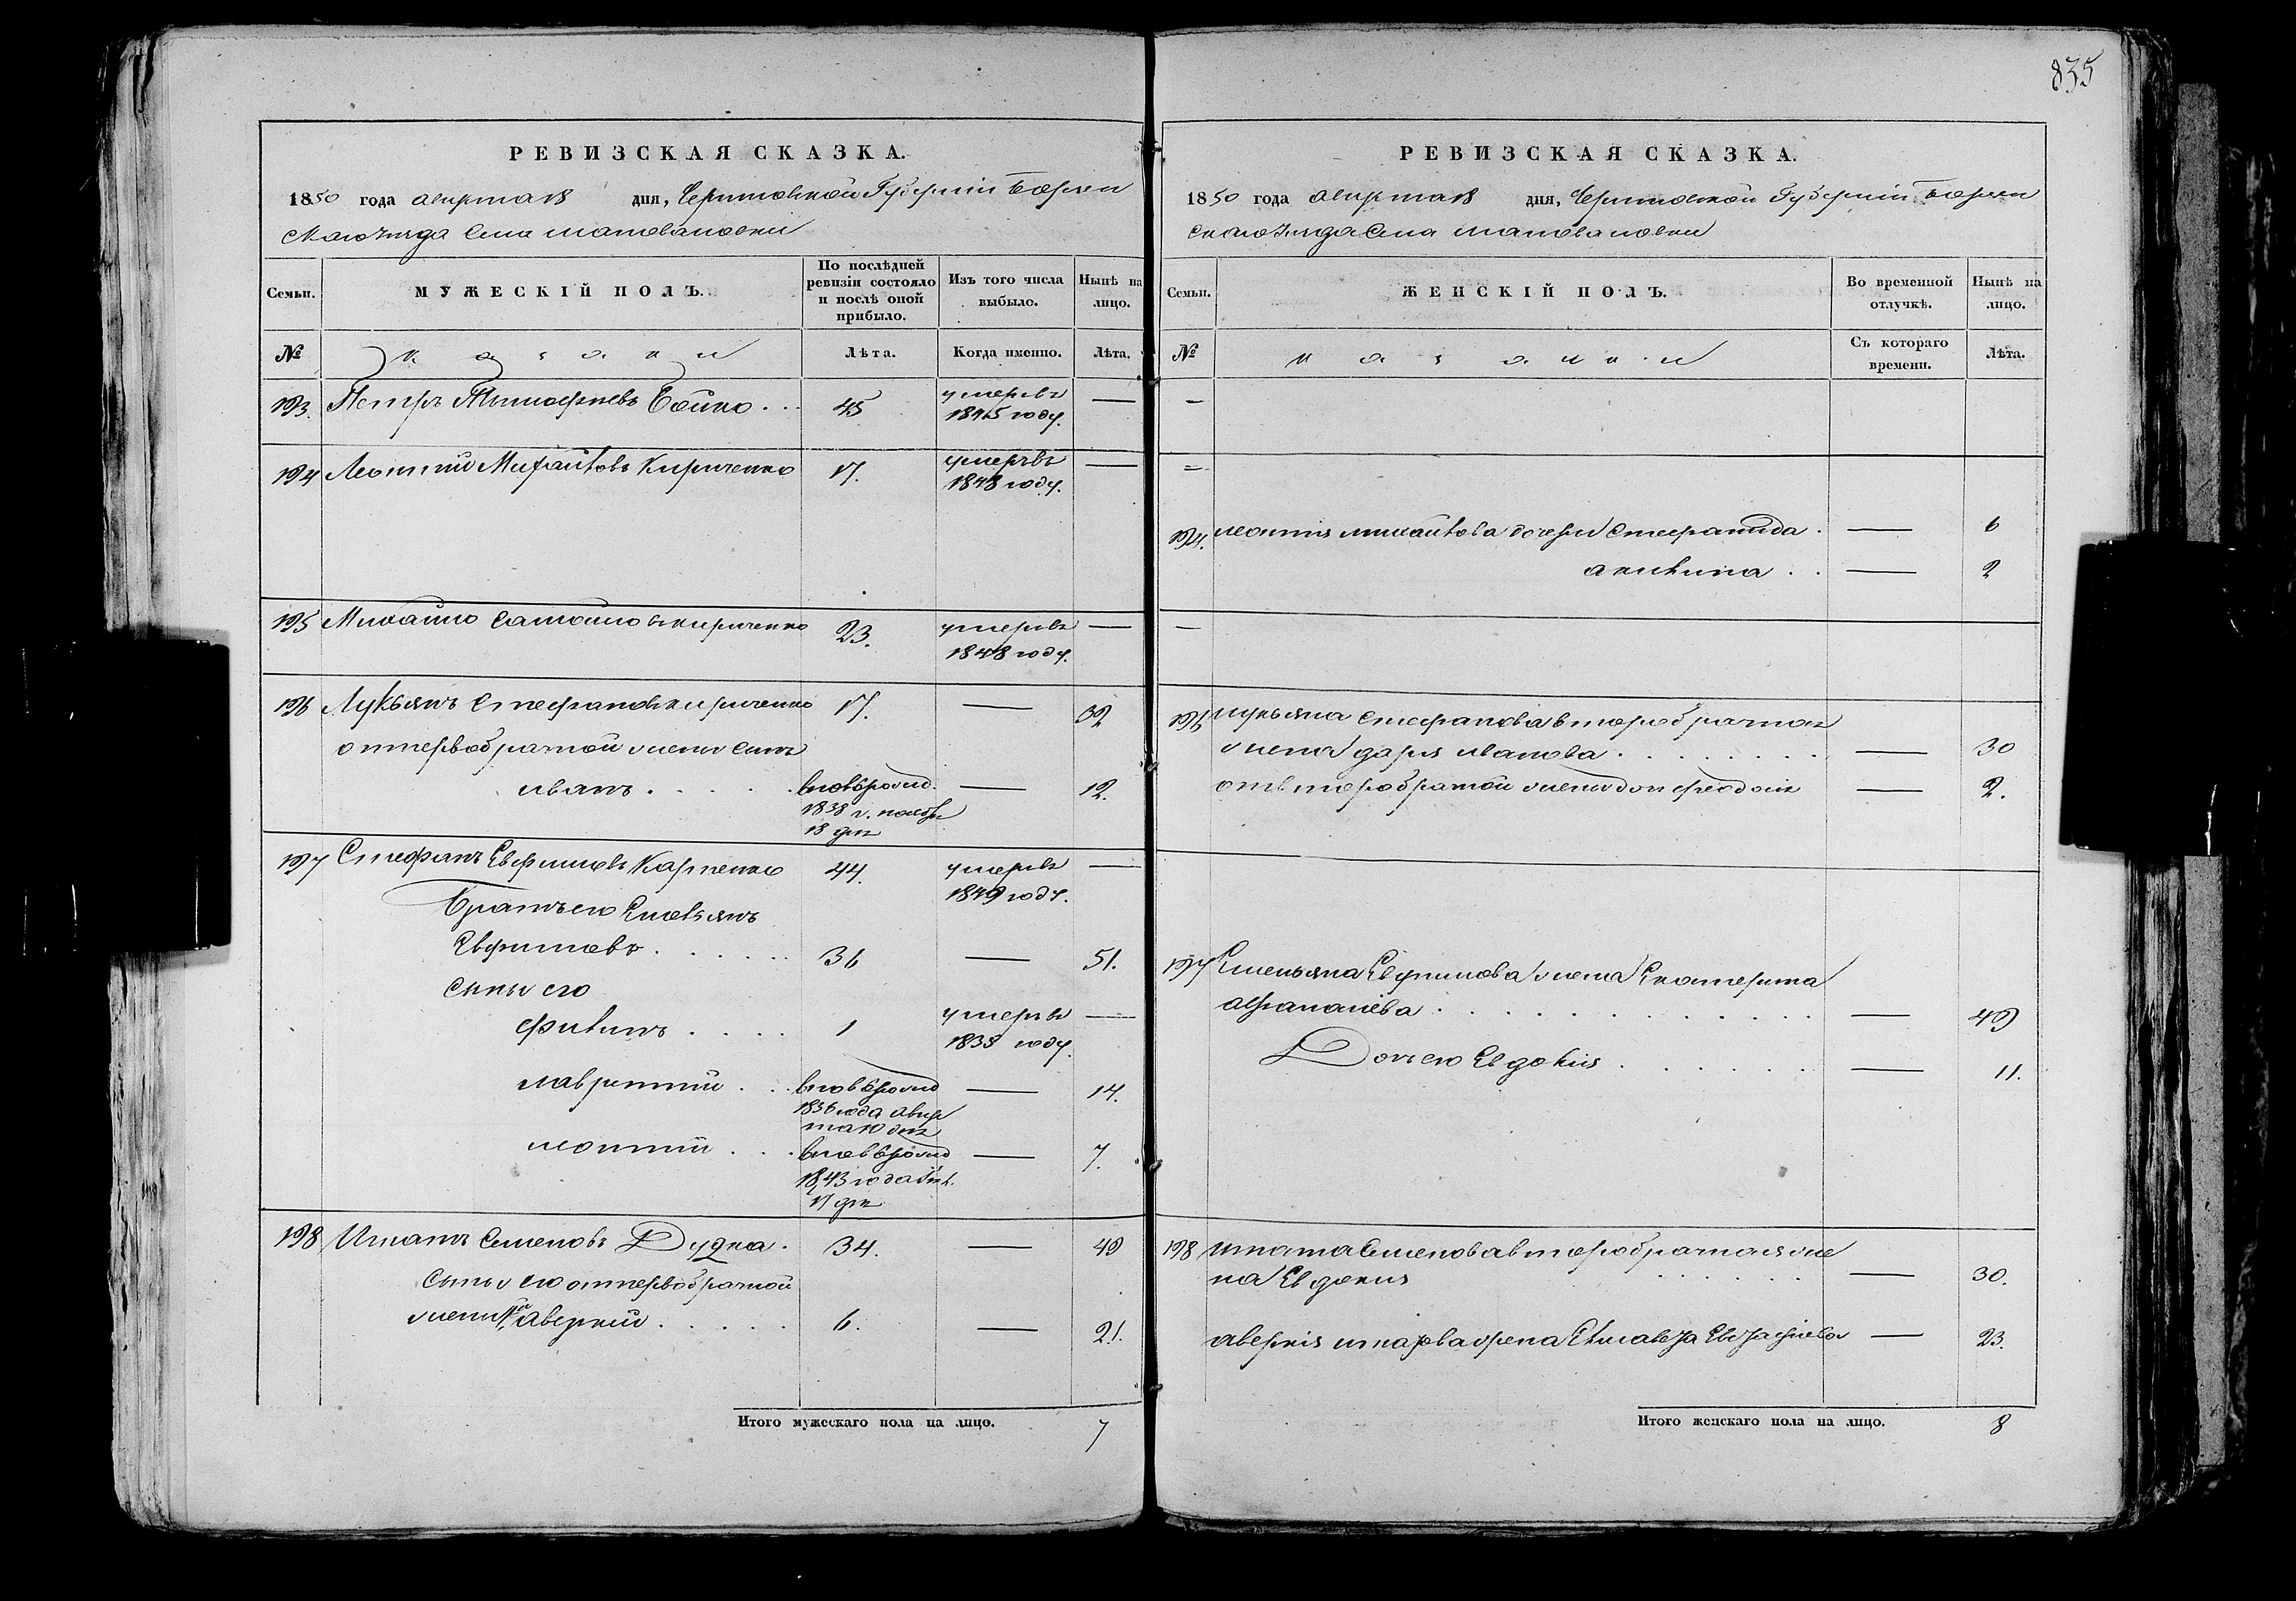 835
РЕВИЗСКАЯ СКАЗКА.
1850 года августа 18 дня, Черниговской Губернии Борзен
скаго уезда села
Семьи.
МУЖЕСКІЙ ПОЛЪ.
По послѣдней ревизіи состояло и послѣ оной прибыло.
Изъ того числа выбыло.
Нынѣ на лицо.
№
казаки
Лѣта.
Когда именно.
Лѣта.
193. Петръ Тимофиевъ Бойко . . . 45 умеръ —
1845 году.
194 Леонтий Михайловъ Кириченко 17. умеръ —
1848 году.
195 Михайло Самойловъ Кириченко 23. умеръ —
1848 году.
196 Лукьянъ Стефановъ Кириченко 17. — 32
от первобрачной жены сынъ
иванъ . . . . . вновь рожд. — 12.
1838 г. ноября
18 дня
197 Стефанъ Евфимовъ Карпенко 44. умеръ —
1849 году.
Братъ его Емельянъ
Евфимовъ . . . . . . 36 — 51.
сыны его
филипъ . . . . 1 умеръ —
1838 году.
лаврентий . . . вновь рожд — 14.
1836 года авгу
ста 10 дня
леонтий . . . вновь рожд — 7.
1843 года
17 дня
198 Игнатъ Семеновъ Дудка . 34. — 49
сыны его от первобрачной
жены аверкий . . . . . 6. — 21.
Итого мужескаго пола на лицо. 7
РЕВИЗСКАЯ СКАЗКА.
1850 года августа 18 дня, Черниговской Губернии Борзен
скаго уезда села
Семьи.
ЖЕНСКІЙ ПОЛЪ.
Во временной отлучкѣ.
Нынѣ на лицо.
№
казачки
Съ котораго времени.
Лѣта.
—
=
194. леонтия михайлова дочери Стефанида . — 6
акилина . . — 2
—
196 лукьяна стефанова второбрачная
жена дария иванова . . . . . . . . — 30
от второбрачной жены доч феодосия — 2.
197 Емельяна Евфимова жена Екатерина
афанасиева . . . . . . . . . . . . . — 49
Доч его Евдокия . . . . . . — 11.
198 игната Семенова второбрачная же
на Евдокия . . . . . . — 30.
аверкия игнатова жена Елисавета — 23.
Итого женскаго пола на лицо. 8